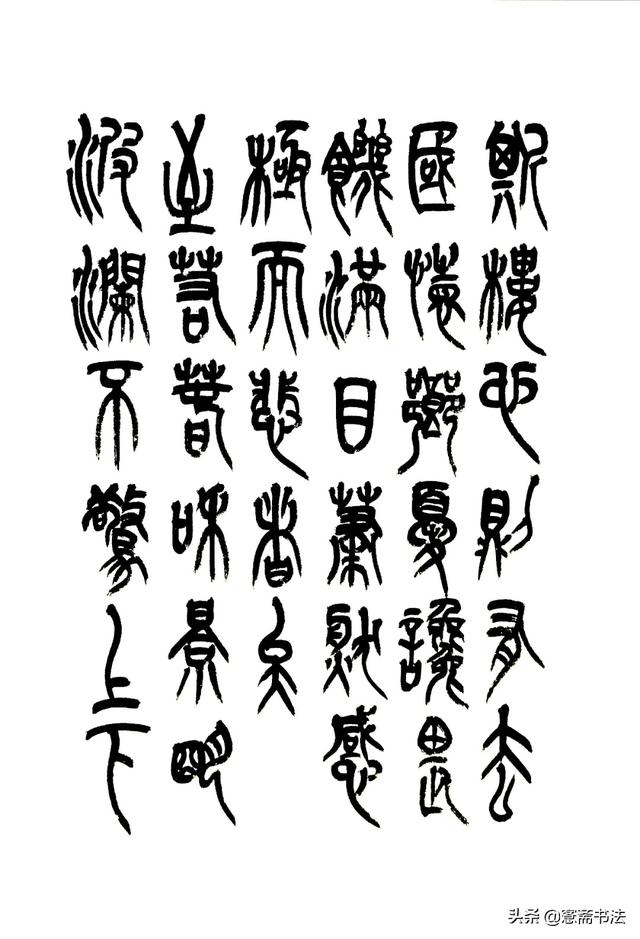 斯樓也則有去
國懷鄉憂讒畏
饑滿目蕭然感
極而悲者矣
至若春和景明
波瀾不驚上下
头条 @斋书法